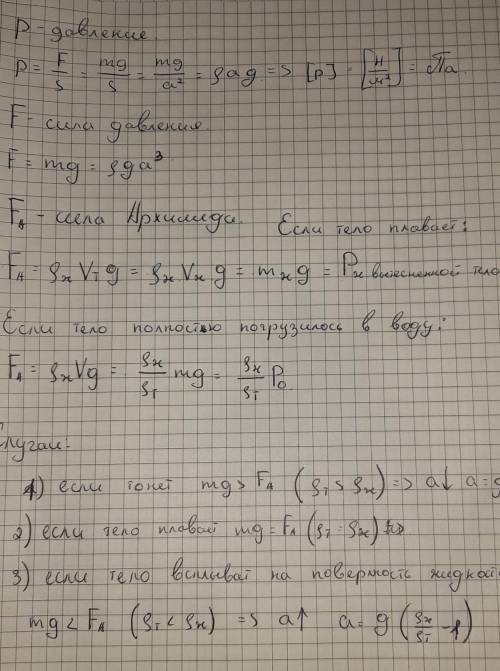 P - давление.
P = F/S = mg/S = mg/a² = ρag => [P] = [Н/м²] = Па
F - сила давления.
F = mg = ρga³
F_A - сила Архимеда. Если тело плавает:
F_A = ρж Vт g = ρж Vж g = mж g = Pж вытесненной тело
Если тело полностью погрузилось в воду:
F_A = ρж Vg = ρж/ρт mg = ρж/ρт P₀
Случаи:
1) если тонет mg > F_A (ρт > ρж) => a↓ a = g
2) если тело плавает mg = F_A (ρт = ρж)
3) если тело всплывает на поверхность жидкост
mg < F_A (ρт < ρж) => a↑ a = g (ρж/ρт - 1)